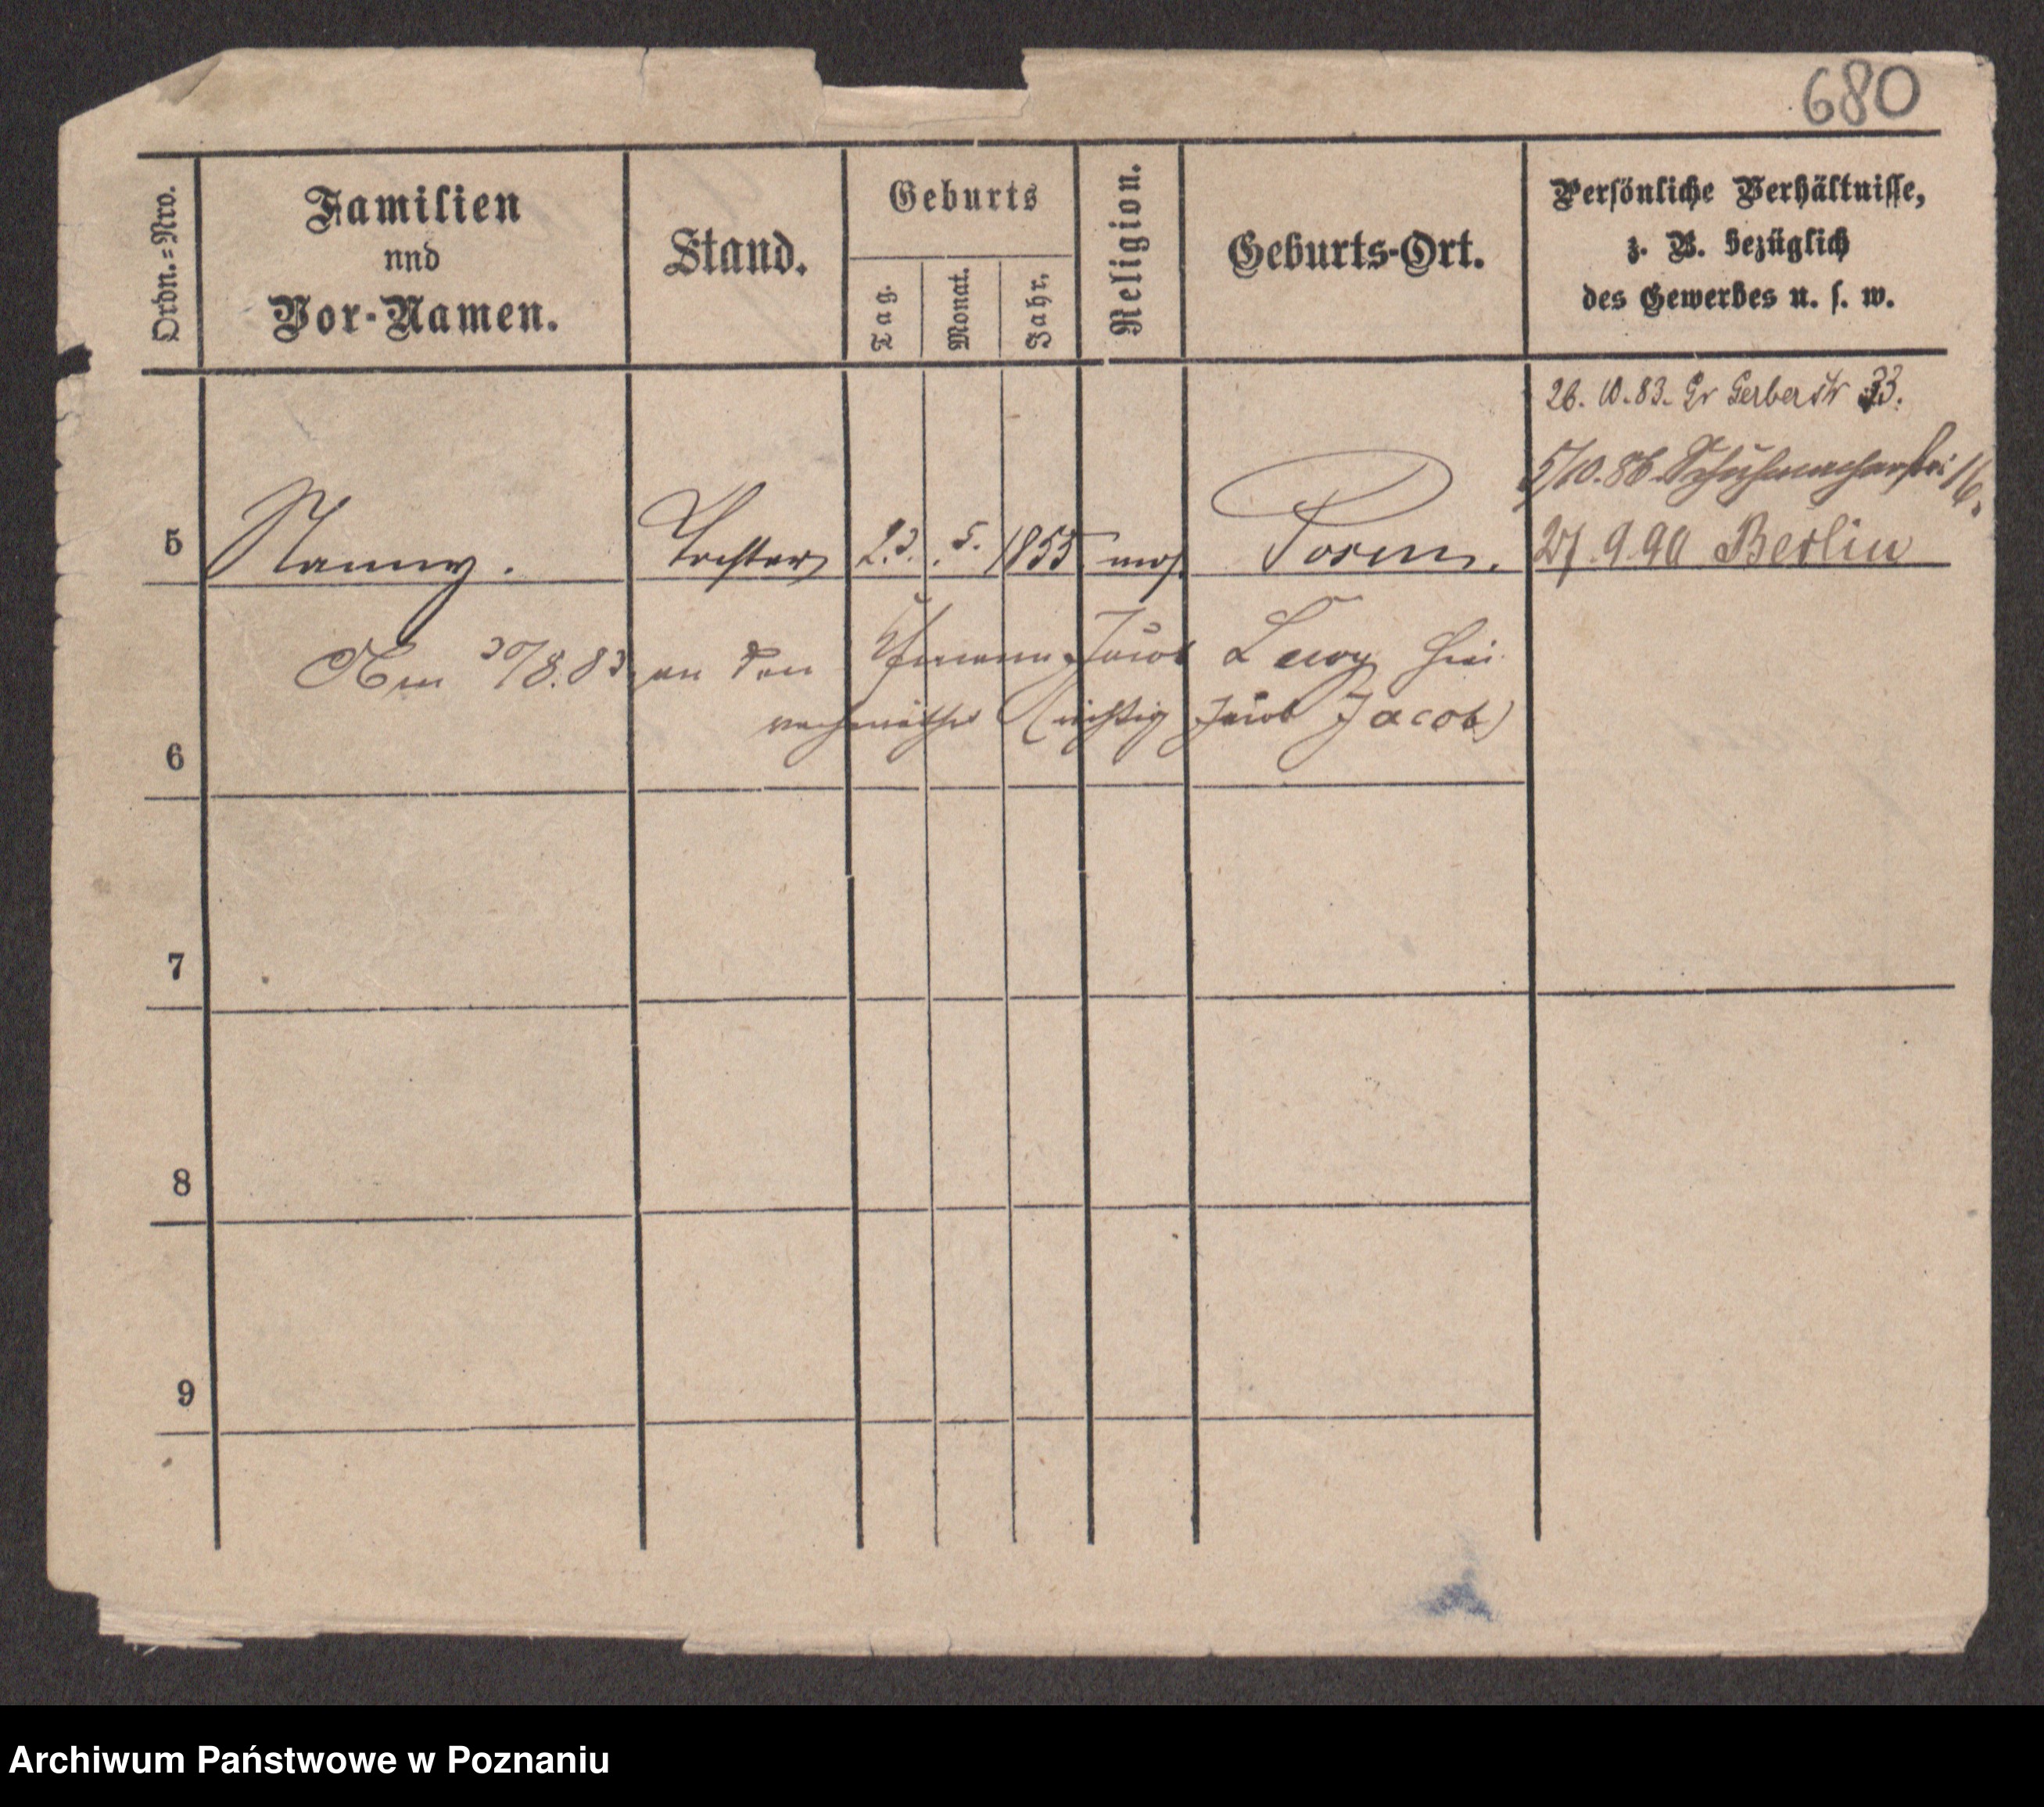 680
Ordn.=Nro.
Familien
und
Vor-Namen.
Stand.
Geburts
Tag.
Monat.
Jahr.
Religion.
Geburts-Ort.
Persönliche Verhältnisse,
z. B. bezüglich
des Gewerbes u. s. w.
26. 10. 83. Gr Gerberstr 33.
5/10. 86 Schuhmacherstr 16.
5 Nanny. Tochter 23. 5. 1855 mos. Posen. 27. 9. 90 Berlin
Am 30/8. 83 an den Jacob Lewy hier
(richtig Jacob Jacob)
6
7
8
9
Archiwum Państwowe w Poznaniu